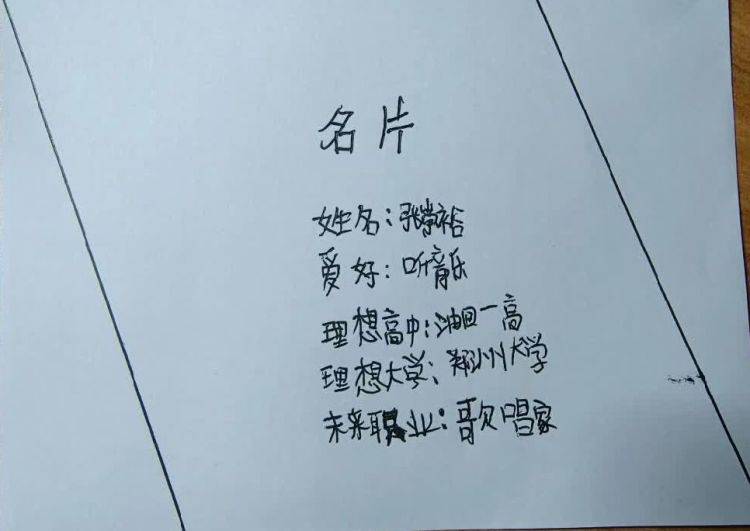 名片
姓名：张紫裕
爱好：听音乐
理想高中：油田一高
理想大学：郑州大学
未来职业：歌唱家